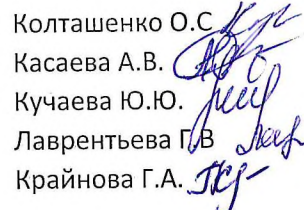 Колташенко О.С
Касаева А.В.
Кучаева Ю.Ю.
Лаврентьева Г.В
Крайнова Г.А.